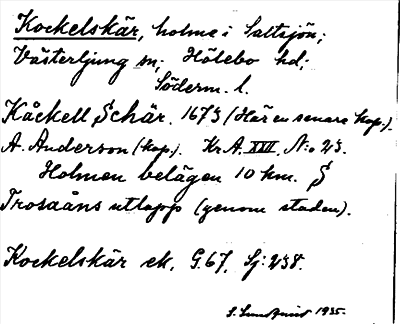 Kockelskär, holme i Saltsjön;
Västerljung sn; Hölebo hd;
Söderm. l.
Kåckell Schär. 1673 (Här en senare kop.).
A. Anderson (kop.). Kr.A. XXII. N:o 23.
Holmen belägen 10 km. S
Trosaåns utlopp (genom staden).
Kockelskär ek. G.67. Sj: 238.
S. Lundquist 1935.